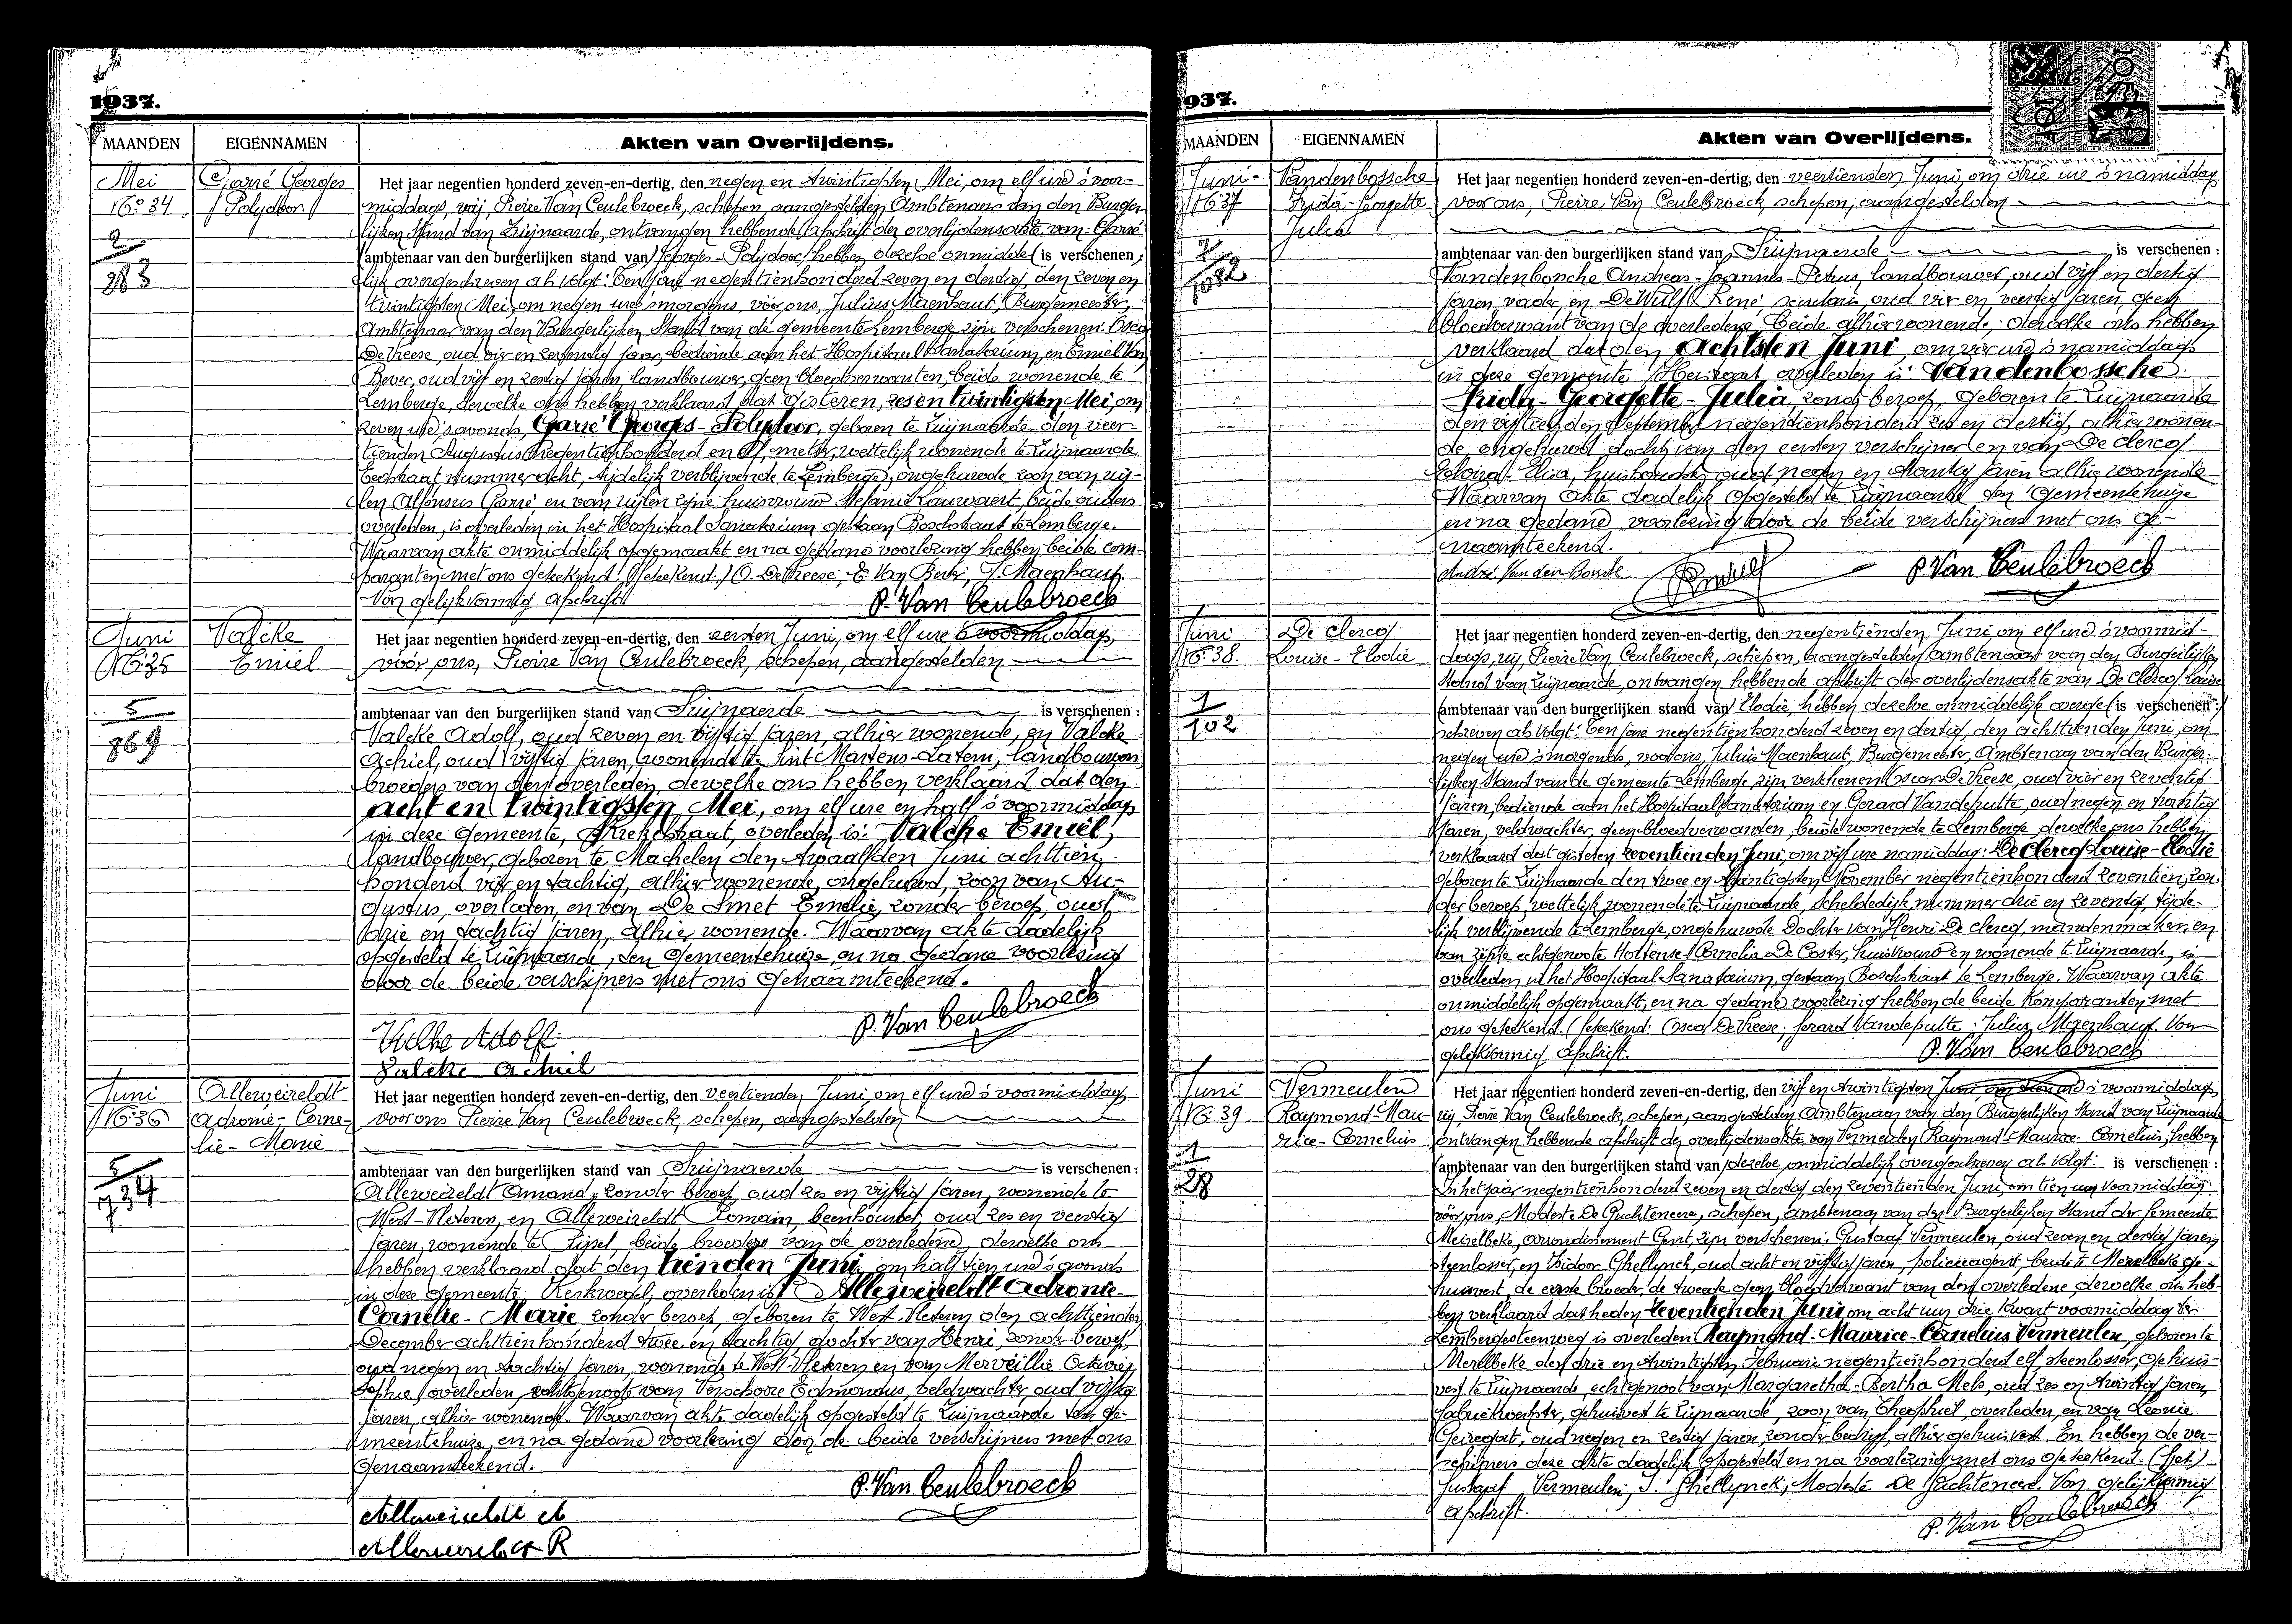 1937.
MAANDEN
EIGENNAMEN
Akten van Overlijdens.
Mei
No 34
2
283
Garré Georges
Polydoor.
Het jaar negentien honderd zeven-en-dertig, den negen en twintigsten Mei, om elf ure 's voor-
middags, wij, Pierre Van Ceulebroeck, schepen, aangestelden Ambtenaar van den Burger-
lijken Stand van Zwijnaarde, ontvangen hebbende afschrift der overlijdensakte van Garré
ambtenaar van den burgerlijken stand van Georges-Polydoor, hebben dezelve onmiddel- is verschenen,
lijk overgeschreven als volgt: Ten jare negentienhonderd zeven en dertig, den zeven en
twintigsten Mei, om negen ure 's morgens, vóór ons, Julius Maenhaut, Burgemeester,
Ambtenaar van den Burgerlijken Stand van de gemeente Lemberge zijn verschenen: Oscar
De Vreese, oud vier en zeventig jaar, bediende aan het Hospitaal Sanatorium, en Emiel Van
Bever, oud vijf en zestig jaren, landbouwer, geen bloedverwanten, beide wonende te
Lemberge, dewelke ons hebben verklaard dat gisteren, zes en twintigsten Mei, om
zeven ure 's avonds, Garré Georges-Polydoor, geboren te Zwijnaarde den veer-
tienden Augustus negentienhonderd en elf, metser, wettelijk wonende te Zwijnaarde
nummer acht, tijdelijk verblijvende te Lemberge, ongehuwde zoon van wij-
len Alfonsus Garré en van wijlen zijne huisvrouw Melanie Lauwaert, beide ouders
overleden, is overleden in het Hospitaal Sanatorium gestaan Boschstraat te Lemberge.
Waarvan akte onmiddelijk opgemaakt en na gedane voorlezing hebben beide com-
paranten met ons geteekend. (Geteekend.) O. De Vreese, E. Van Bever, J. Maenhaut.
Voor gelijkvormig afschrift
P. Van Ceulebroeck
Juni
No 35
5
869
Valcke
Emiel
Het jaar negentien honderd zeven-en-dertig, den eersten Juni, om elf ure 's voormiddags,
vóór ons, Pierre Van Ceulebroeck, schepen, aangestelden
ambtenaar van den burgerlijken stand van Zwijnaarde is verschenen :
Valcke Adolf, oud zeven en vijftig jaren, alhier wonende, en Valcke
Achiel, oud vijftig jaren, wonende te Sint Martens-Latem, landbouwers,
broeders van den overleden, dewelke ons hebben verklaard dat den
acht en twintigsten Mei, om elf ure en half 's voormiddags
in deze gemeente, overleden is: Valcke Emiel,
landbouwer, geboren te Machelen den twaalfden Juni achttien
honderd vijf en tachtig, alhier wonende, ongehuwd, zoon van Au-
gustus, overleden, en van De Smet Emelie, zonder beroep, oud
drie en tachtig jaren, alhier wonende. Waarvan akte dadelijk
opgesteld te Zwijnaarde, den Gemeentehuize en na gedane voorlezing
door de beide verschijners met ons genaamteekend.
P. Van Ceulebroeck
Valcke Adolf
Valcke Achiel
Juni
No 36
5
734
Alleweireldt
Adronie-Corne-
lie-Marie
Het jaar negentien honderd zeven-en-dertig, den veertienden Juni, om elf ure 's voormiddags
voor ons Pierre Van Ceulebroeck, schepen, aangestelden
ambtenaar van den burgerlijken stand van Zwijnaarde is verschenen :
Alleweireldt Amand, zonder beroep, oud zes en vijftig jaren, wonende te
West-Vleteren, en Alleweireldt Romain, beenhouwer, oud zes en veertig
jaren, wonende te beide broeders van de overledene, dewelke ons
hebben verklaard dat den tienden Juni, om half tien ure 's avonds
in deze gemeente, overleden is: Alleweireldt Adronie-
Cornelie-Marie, zonder beroep, geboren te West-Vleteren den achttienden
December achttienhonderd twee en tachtig, dochter van Henri, zonder beroep,
oud negen en tachtig jaren, wonende te West-Vleteren en van Merveillie Octavie
Sophie, overleden, echtgenoote van Verschoore Edmondus, veldwachter, oud vijftig
jaren, alhier wonende. Waarvan akte dadelijk opgesteld te Zwijnaarde ten ge-
meentehuize, en na gedane voorlezing door de beide verschijners met ons
genaamteekend.
P. Van Ceulebroeck
Alleweireldt A
Alleweireldt R
937.
MAANDEN
EIGENNAMEN
Akten van Overlijdens.
Juni
No 37
7
1082
Vandenbossche
Frida-Georgette
Julia
Het jaar negentien honderd zeven-en-dertig, den veertienden Juni, om drie ure 's namiddags
voor ons, Pierre Van Ceulebroeck, schepen, aangestelden
ambtenaar van den burgerlijken stand van Zwijnaarde is verschenen :
Vandenbossche Andreas-Joannes-Petrus, landbouwer, oud vijf en dertig
jaren, vader, en De Wulf René, secretaris, oud vier en veertig jaren, geen
bloedverwant van de overledene, beide alhier wonende, dewelke ons hebben
verklaard dat den achtsten Juni, om vier ure 's namiddags
in deze gemeente, overleden is: Vandenbossche
Frida-Georgette-Julia, zonder beroep, geboren te Zwijnaarde
den vijftienden September negentienhonderd zes en dertig, alhier wonen-
de, ongehuwd, dochter van den eersten verschijner en van De Clercq
Elisa, huishoudster, oud negen en twintig jaren, alhier wonende
Waarvan akte dadelijk opgesteld te Zwijnaarde ten Gemeentehuize
en na gedane voorlezing door de beide verschijners met ons ge-
naamteekend.
André Van den Bossche
P. Van Ceulebroeck
Juni
No 38.
1
102
De Clercq
Louise-Elodie
Het jaar negentien honderd zeven-en-dertig, den negentienden Juni, om elf ure 's voormid-
dags, wij, Pierre Van Ceulebroeck, schepen, aangestelden ambtenaar van den Burgerlijken
Stand van Zwijnaarde, ontvangen hebbende afschrift der overlijdensakte van De Clercq Louise
ambtenaar van den burgerlijken stand van Elodie, hebben dezelve onmiddelijk overge- is verschenen :
schreven als volgt: Ten jare negentienhonderd zeven en dertig, den achttienden Juni, om
negen ure 's morgends, voor ons, Julius Maenhaut, Burgemeester, Ambtenaar van den Burger-
lijken Stand van de gemeente Lemberge, zijn verschenen Oscar De Vreese, oud vier en zeventig
jaren, bediende aan het Hospitaal Sanatorium en Gerard Vandeputte, oud negen en
jaren, veldwachter, geen bloedverwanten, beide wonende te Lemberge dewelke ons hebben
verklaard dat gisteren zeventienden Juni, om vijf ure namiddag: De Clercq Louise-Elodie
geboren te Zwijnaarde den twee en twintigsten November negentienhonderd zeventien, zon-
der beroep, wettelijk wonende te Zwijnaarde, Scheldedijk, nummer drie en zeventig, tijde-
lijk verblijvende te Lemberge, ongehuwde dochter van Henri De Clercq, mandenmaker, en
van zijne echtgenoote Hortense Cornelia De Coster, huishoudster wonende te Zwijnaarde, is
overleden in het Hospitaal Sanatorium, gestaan Boschstraat te Lemberge. Waarvan akte
onmiddelijk opgemaakt, en na gedane voorlezing hebben de beide Komparanten met
ons geteekend. (Geteekend: Oscar De Vreese; Gerard Vandeputte. Julius Maenhaut. Voor
gelijkvormig afschrift.
P. Van Ceulebroeck
Juni
No 39
1
28
Vermeulen
Raymond-Mau-
rice-Cornelius
Het jaar negentien honderd zeven-en-dertig, den vijf en twintigsten Juni, om ure 's voormiddags,
wij, Pierre Van Ceulebroeck, schepen, aangestelden Ambtenaar van den Burgerlijken Stand van Zwijnaarde
ontvangen hebbende afschrift der overlijdensakte van Vermeulen Raymond-Maurice-Cornelius, hebben
ambtenaar van den burgerlijken stand van dezelve onmiddelijk overgeschreven als volgt: is verschenen :
In het jaar negentienhonderd zeven en dertig den zeventienden Juni, om tien uur voormiddag
vóór ons, Modeste De Guchteneere, schepen, ambtenaar van den Burgerlijken Stand der Gemeente
Meirelbeke, arrondissement Gent, zijn verschenen: Gustaaf Vermeulen, oud zeven en dertig jaren
steenlosser, en Isidoor Ghellynck, oud acht en vijftig jaren, policieagent, beide te Merelbeke ge-
huisvest, de eerste broeder, de tweede geen bloedverwant van den overledene, dewelke ons heb-
ben verklaard dat heden zeventienden Juni om acht uur drie kwart voormiddag ter
Lembergesteenweg is overleden Raymond-Maurice-Cornelius Vermeulen, geboren te
Merelbeke den drie en twintigsten Februari negentienhonderd elf, steenlosser, gehuis-
vest te Zwijnaarde, echtgenoot van Margaretha-Bertha Mels, oud zes en twintig jaren,
fabriekwerkster, gehuisvest te Zwijnaarde, zoon van Theophiel, overleden, en van Leonie
oud negen en zestig jaren, zonder bedrijf, alhier gehuisvest. En hebben de ver-
schijners deze akte dadelijk opgesteld en na voorlezing met ons geteekend. (Get.)
Gustaaf Vermeulen, I. Ghellynck, Modeste De Guchteneere. Voor gelijkvormig
afschrift.
P. Van Ceulebroeck